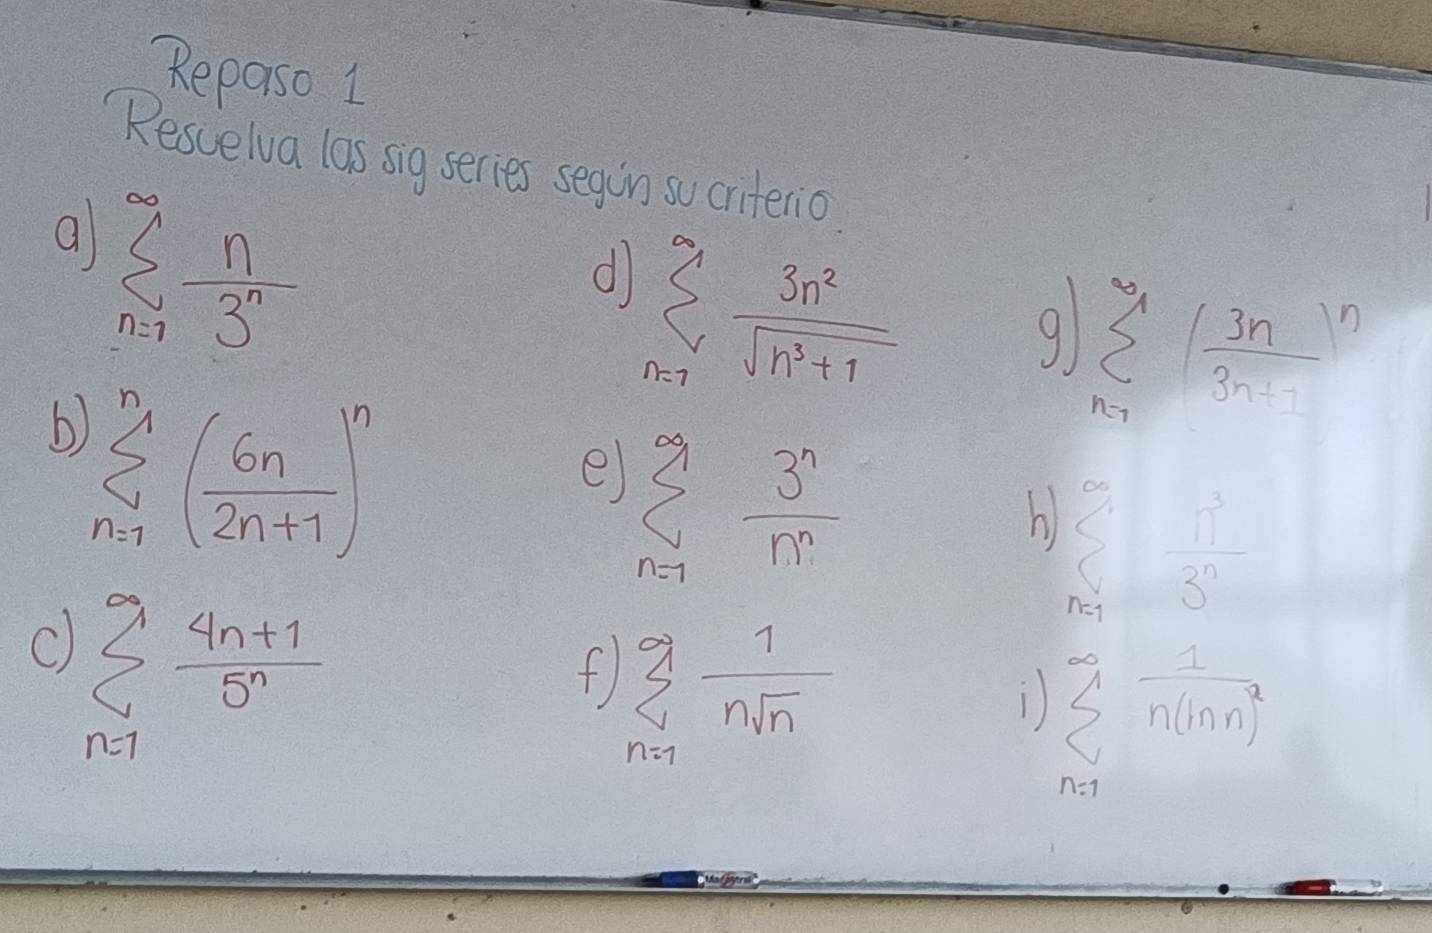 Repaso 1
Resuelva las sig series según su criterio
a) ∞ Σ n=1 n / 3^n
b) n Σ n=1 (6n / 2n+1)^n
c) ∞ Σ n=1 4n+1 / 5^n
d) ∞ Σ n=1 3n² / √(n³+1)
e) ∞ Σ n=1 3^n / n^n
f) ∞ Σ n=1 1 / n√n
g) ∞ Σ n=1 (3n / 3n+1)^n
h) ∞ Σ n=1 n³ / 3^n
i) ∞ Σ n=1 1 / n(ln n)²